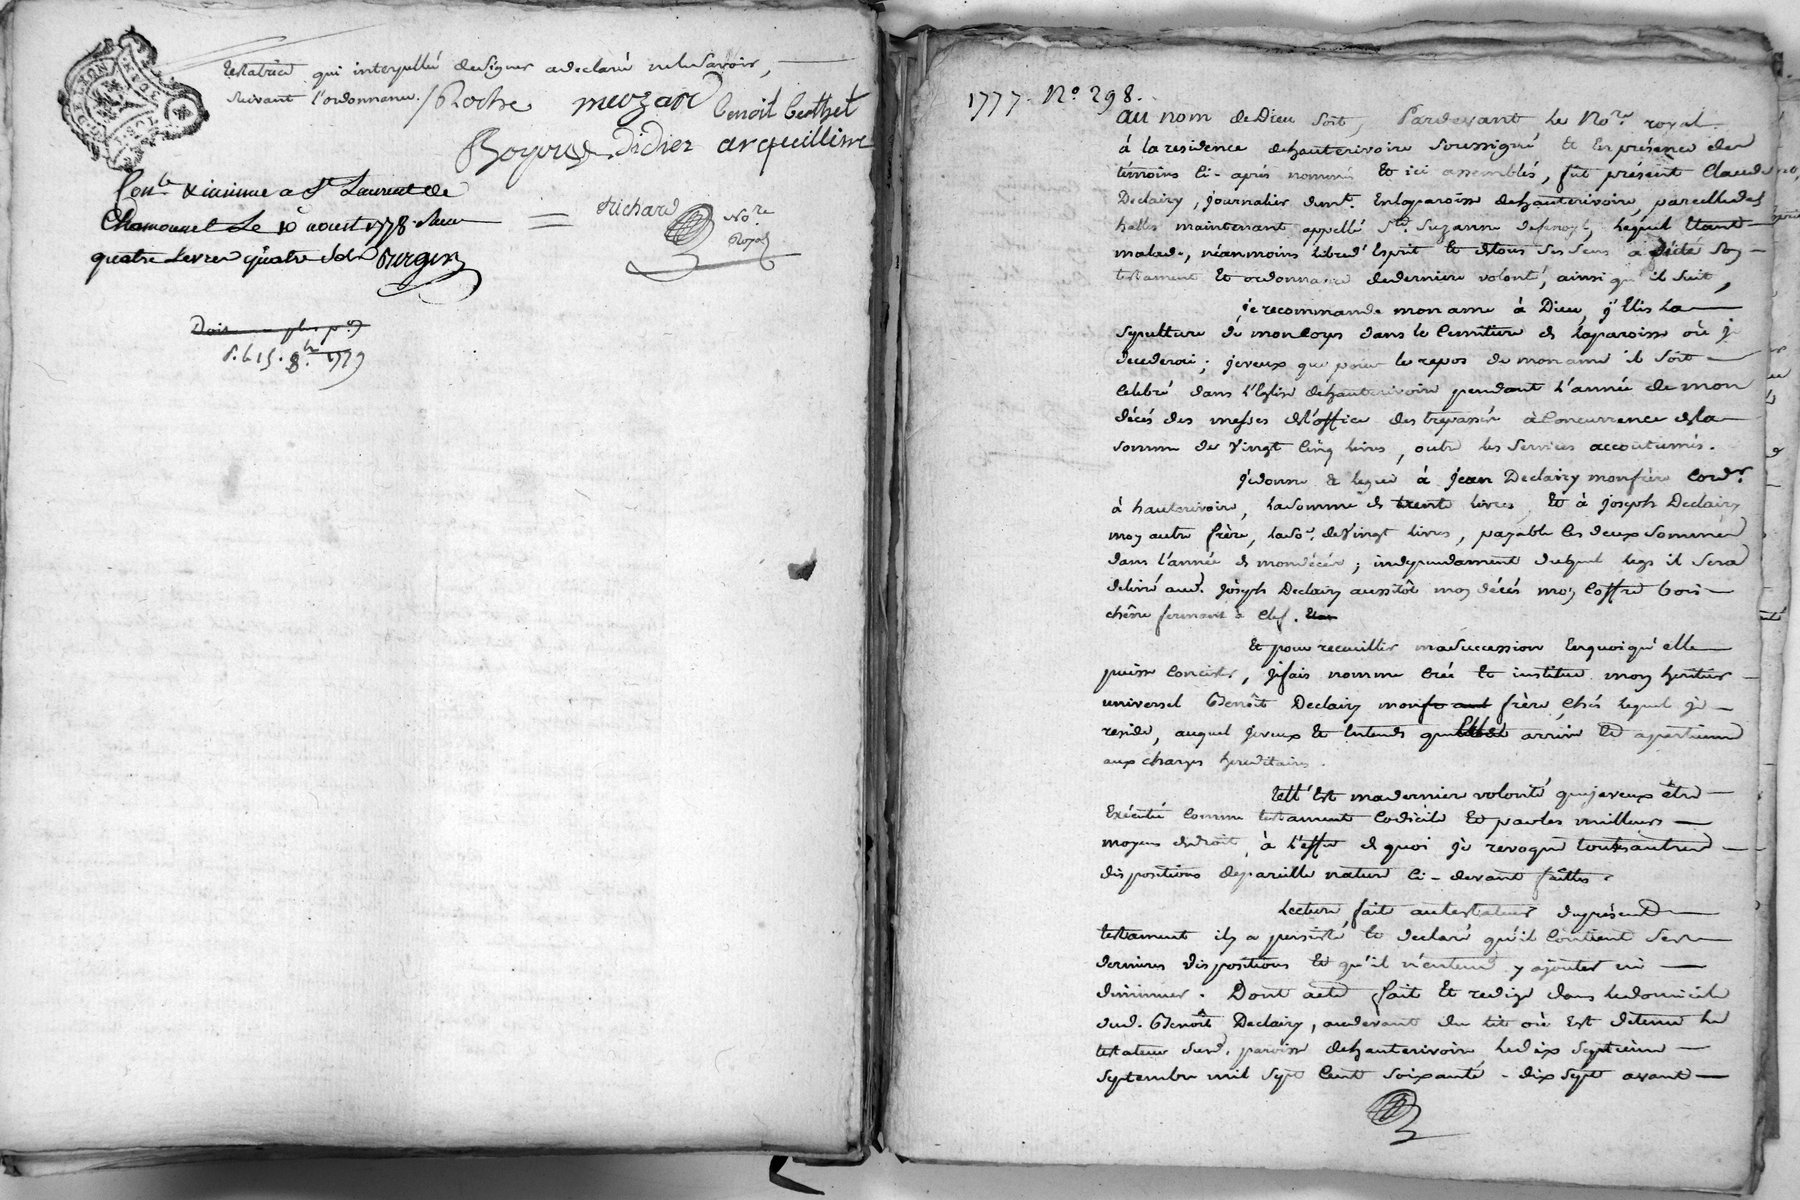 testatrice qui interpellée de signer a declaré ne le savoir,
suivant l'ordonnance. / Roche meozard Benoit Berthet
Boyous Didier arquilline
Con.le & insinué a St Laurent de
Chamousset Le 10 aoust 1778. Reçu
quatre Livres quatre sols Burgin
Richard No.re Royal
P. le 15. 8.bre 1779
1777. N.o 298.
au nom de Dieu soit, Pardevant le No.re royal
à la residence dehauterivoire soussigné Et En présence des
témoins Ci-après nommés Et ici assemblés, fût présent Claude
Declairy, journalier dem.t En laparoisse dehauterivoire, parcelle des
halles maintenant appellé S.te Suzanne, lequel Etant
malade, néanmoins libre d'Esprit Et detous ses sens a fait son
testament Et ordonnance dederniere volonté, ainsi qu'il suit,
je recommande mon ame à Dieu, j'Elis la
sepulture de mon Corps dans le Cemitiere de laparoisse où je
decederai ; jeveux que pour le repos de mon ame il soit
Celebré dans l'Eglise dehauterivoire pendant l'année de mon
décés des messes del'office des trepassés à Concurrence dela
somme de Vingt Cinq livres, outre les services accoutumés.
jedonne & legue à Jean Declairy monfrère Cord.r
à hauterivoire, lasomme de trente livres, Et à joseph Declairy
mon autre frère, laso.e deVingt livres, payable les deux sommes
dans l'année de mondécés ; independament duquel legs il sera
delivré aud. joseph Declairy aussitôt mon décés mon Coffre bois
chêne fermant à Clef.
Et pour recueillir masuccession Enquoiqu'elle
puisse Concister, jefais nomme Créé Et institue mon heritier
universel Benoît Declairy mon frère, Chés lequel je
reside, auquel jeveux Et Entends qu'elle arrive Et apartienne
aux charges hereditaires.
telle Est maderniere volonté quejeveux être
Exécutée Comme testament Codicile Et parles meilleurs
moyens dedroit, à l'effet de quoi je revoque toutesautres
dispositions depareille nature Ci-devant faittes.
Lecture faite autestateur duprésent
testament ily a persisté Et declaré qu'il Contient ses
dernieres dispositions Et qu'il n'entend y ajouter ni
diminuer. Dont acte fait Et redigé dans ledomicile
dud. Benoît Declairy, audevant du lit où Est détenu le
testateur sud. paroisse dehauterivoire ledix septieme
septembre mil sept Cent soixante-dix sept avant